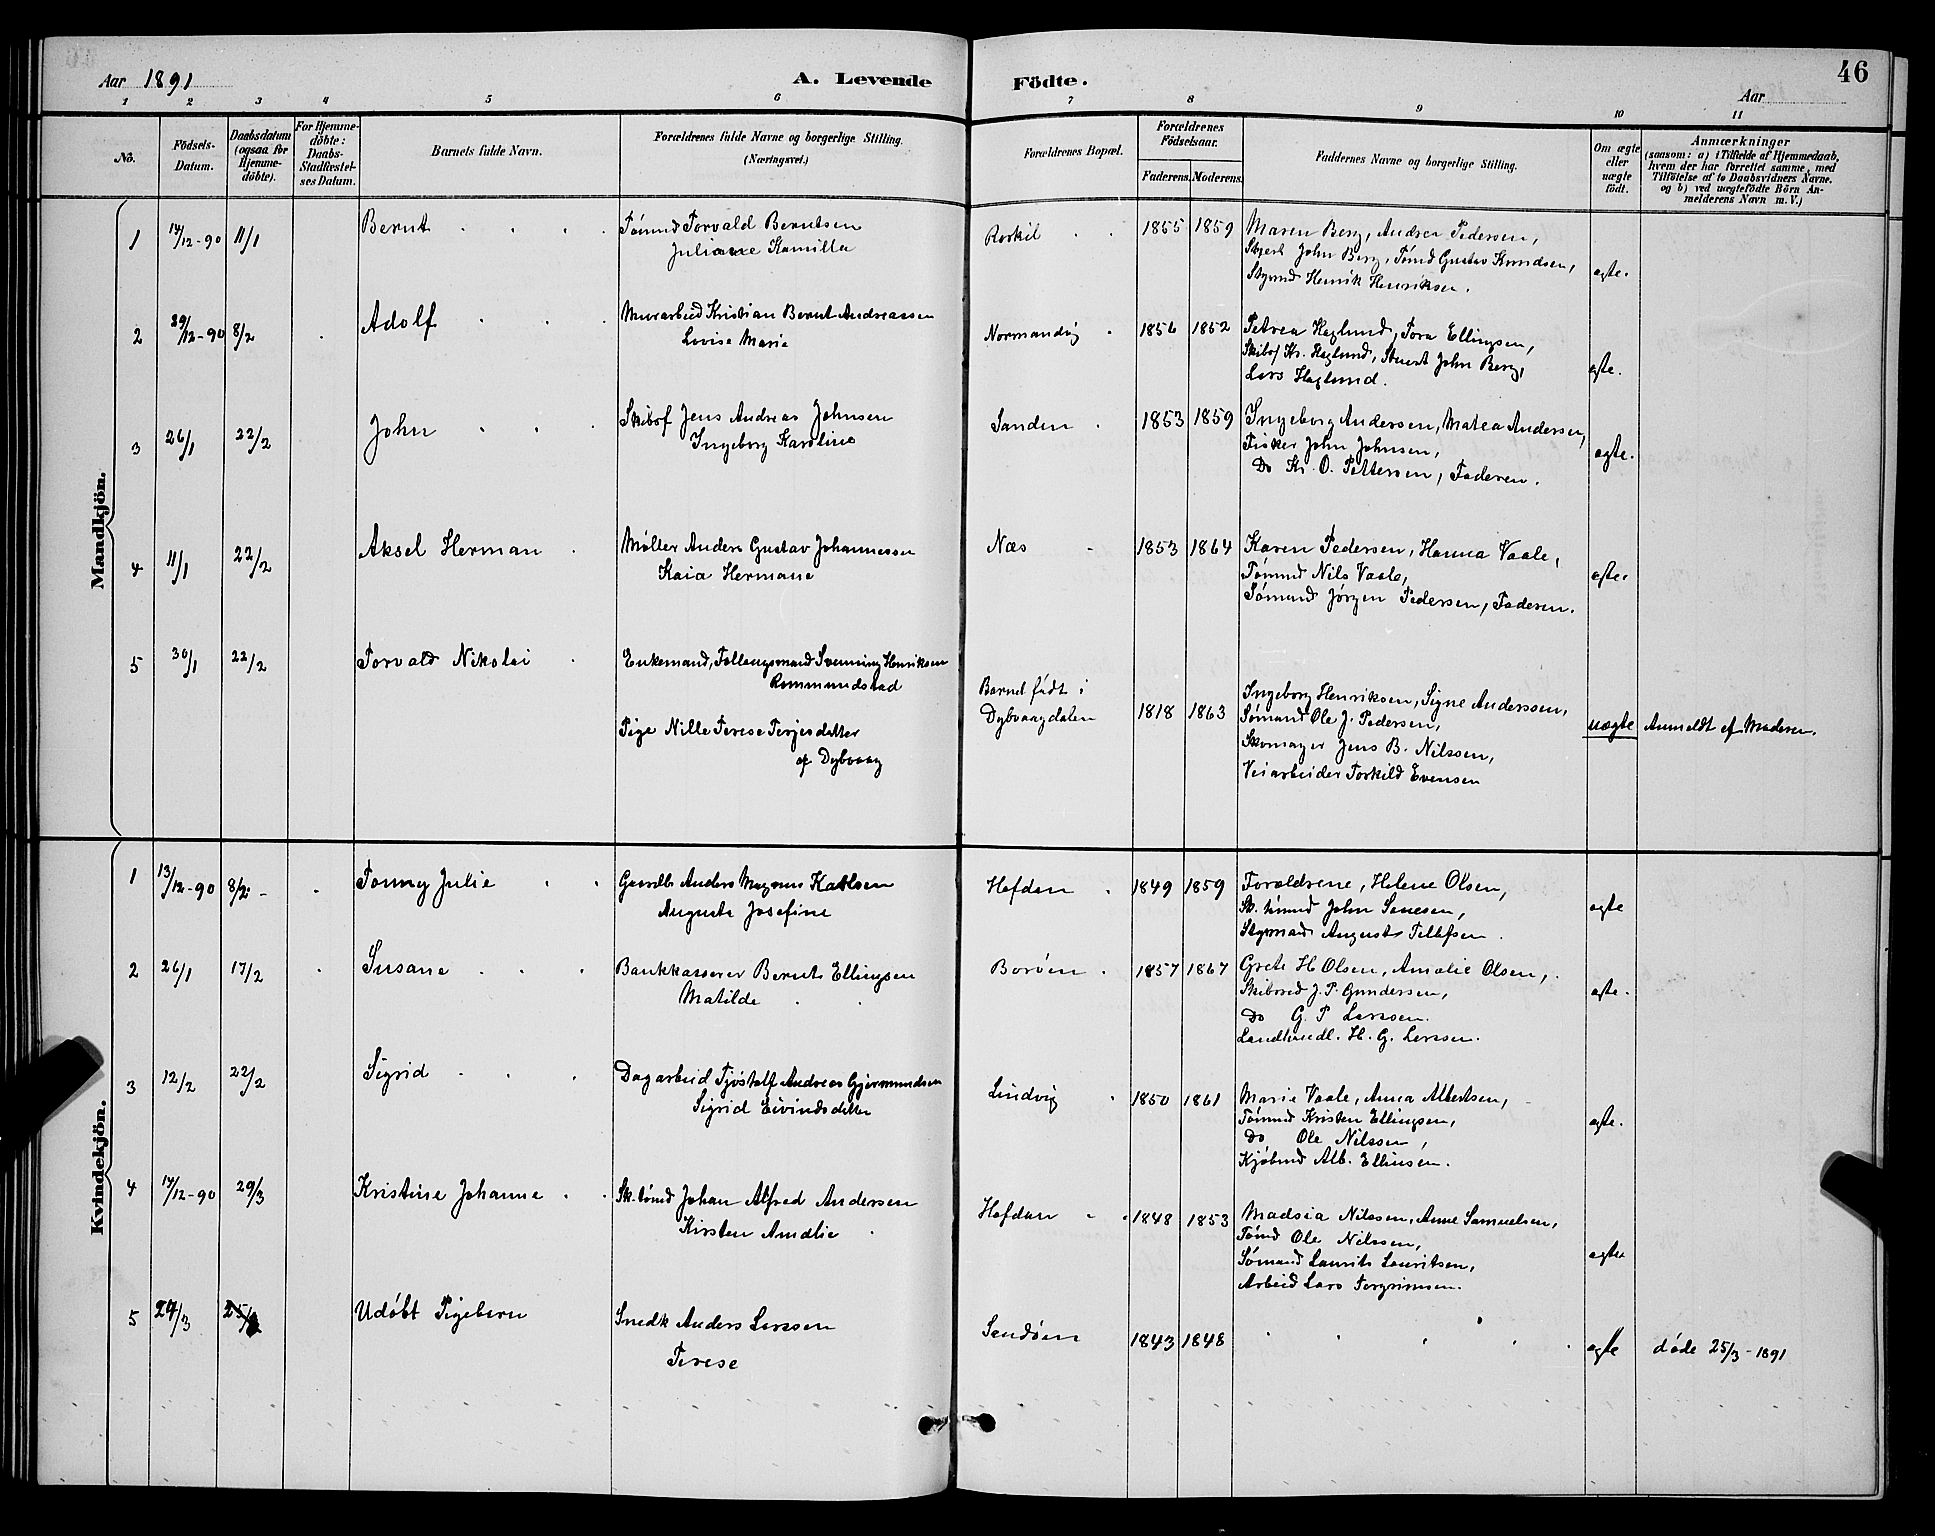 46
Aar 1891
A. Levende Födte.
Aar
1 2 3 4 5 6 7 8 9 10 11
No.
Födsels-Datum.
Daabsdatum (ogsaa for Hjemme-döbte).
For Hjemme-döbte: Daabs-Stadfæstel-ses Datum.
Barnets fulde Navn.
Forældrenes fulde Navne og borgerlige Stilling. (Næringsvei.)
Forældrenes Bopæl.
Forældrenes Födselsaar.
Faderens. Moderens.
Faddernes Navne og borgerlige Stilling.
Om ægte eller uægte födt.
Anmærkninger
(saasom: a) i Tilfælde af Hjemmedaab, hvem der har forrettet samme, med Tilföielse af to Daabsvidners Navne. og b) ved uægtefödte Börn An-melderens Navn m. V.)
Mandkjön.
1 17/12-90 11/1 Bernt Tømmd Torvald Berntsen Roskil 1855 1859 Maren Berg, Andrea Pedersen,
Juliane Kamilla
John Berg, Tømd Gustav Knudsen,
Henrik Henriksen. ægte.
2 29/12-90 8/2 Adolf Murarbeid Kristian Bernt Andreassen Normandvig 1856 1852 Petrea Haglund, Tora Ellingsen,
Lovise Marie
Skibsf Kr. Haglund, John Berg,
Lars Haglund. ægte.
3 26/1 22/2 John Skibsf Jens Andreas Johnsen Sanden 1853 1859 Ingeborg Andersen, Matea Andersen,
Ingeborg Karoline
Fisker John Johnsen,
Do Kr. O. Pettersen, Faderen. ægte.
4 11/1 22/2 Aksel Herman Møller Anders Gustav Johannessen Næs 1853 1864 Karen Pedersen, Hanna Vaale,
Kaia Hermane
Tømmd Nils Vaale,
Sømand Jørgen Pedersen, Faderen. ægte
5 30/1 22/2 Torvald Nikolai Enkemand, Svenning Henriksen
Rommundstad
Barnet født i
Dybvaagdalen 1818 1863 Ingeborg Henriksen, Signe Anderssen,
Pige Nille Terese Terjesdatter
af Dybvaag
Sømand Ole J. Pedersen,
Skomager Jens B. Nilssen,
Veiarbeider Torkild Evensen
uægte Anmeldt af Moderen.
Kvindekjön.
1 13/12-90 8/2 Tonny Julie Gaardb Anders Magnus Karlsen Hofdan 1849 1859 Forældrene, Helene Olsen,
Augusta Josefine
Sk. tømmd John
August Tellefsen. ægte
2 26/1 17/2 Susane Bankkasserer Bernt Ellingsen Borøen 1857 1867 Grete H. Olsen, Amalie Olsen,
Matilde
J. P. Gundersen,
Do G. P. Larssen.
Landhandl. H. G. Larssen. ægte.
3 12/2 22/2 Sigrid Dagarbeid Tjøstolf Andreas Gjermundsen Lindvig 1850 1861 Marie Vaale, Anna Albertsen,
Sigrid Eivindsdatter
Tømmd Kristen Ellingsen,
Do Ole Nilssen,
Kjøbmd Alb. Ellinsen. ægte.
4 17/12-90 29/3 Kristine Johanne Sk. tømd Johan Alfred Andersen Hofdan 1848 1853 Madsia Nilssen, Anne Samuelsen,
Kirsten Amalie
Tømd Ole Nilssen,
Sømand Laurits Lauritsen,
Arbeid Lars Torgrimsen. ægte
5 24/3 Udøbt Pigebarn Snedk Anders Larssen Sandøen 1843 1848 ægte døde 25/3-1891
Terese